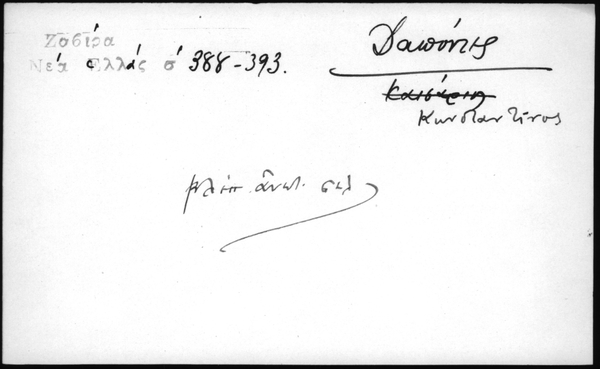 Ζαβίρα
Νέα Ελλάς σ 388-393.
Δαπόντες
Καισάριος
Κωνσταντίνος
βλέπ. ἄνωτ. σελ